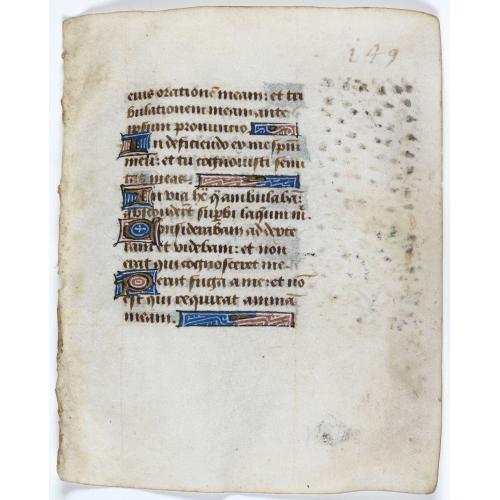 149
eius orationē meam: et tri
bulationem meam ante
ipsum pronuncio.
In deficiendo ex me spm
meū: et tu cognovisti semi
tas meas.
In via hac q̄ ambulabā:
absconderūt supbi laqueum m.
Considerabam ad dexte
ram et videbam: et non
erat qui cognosceret me
Periit fuga a me: et nō
est qui requirat animā
meam.